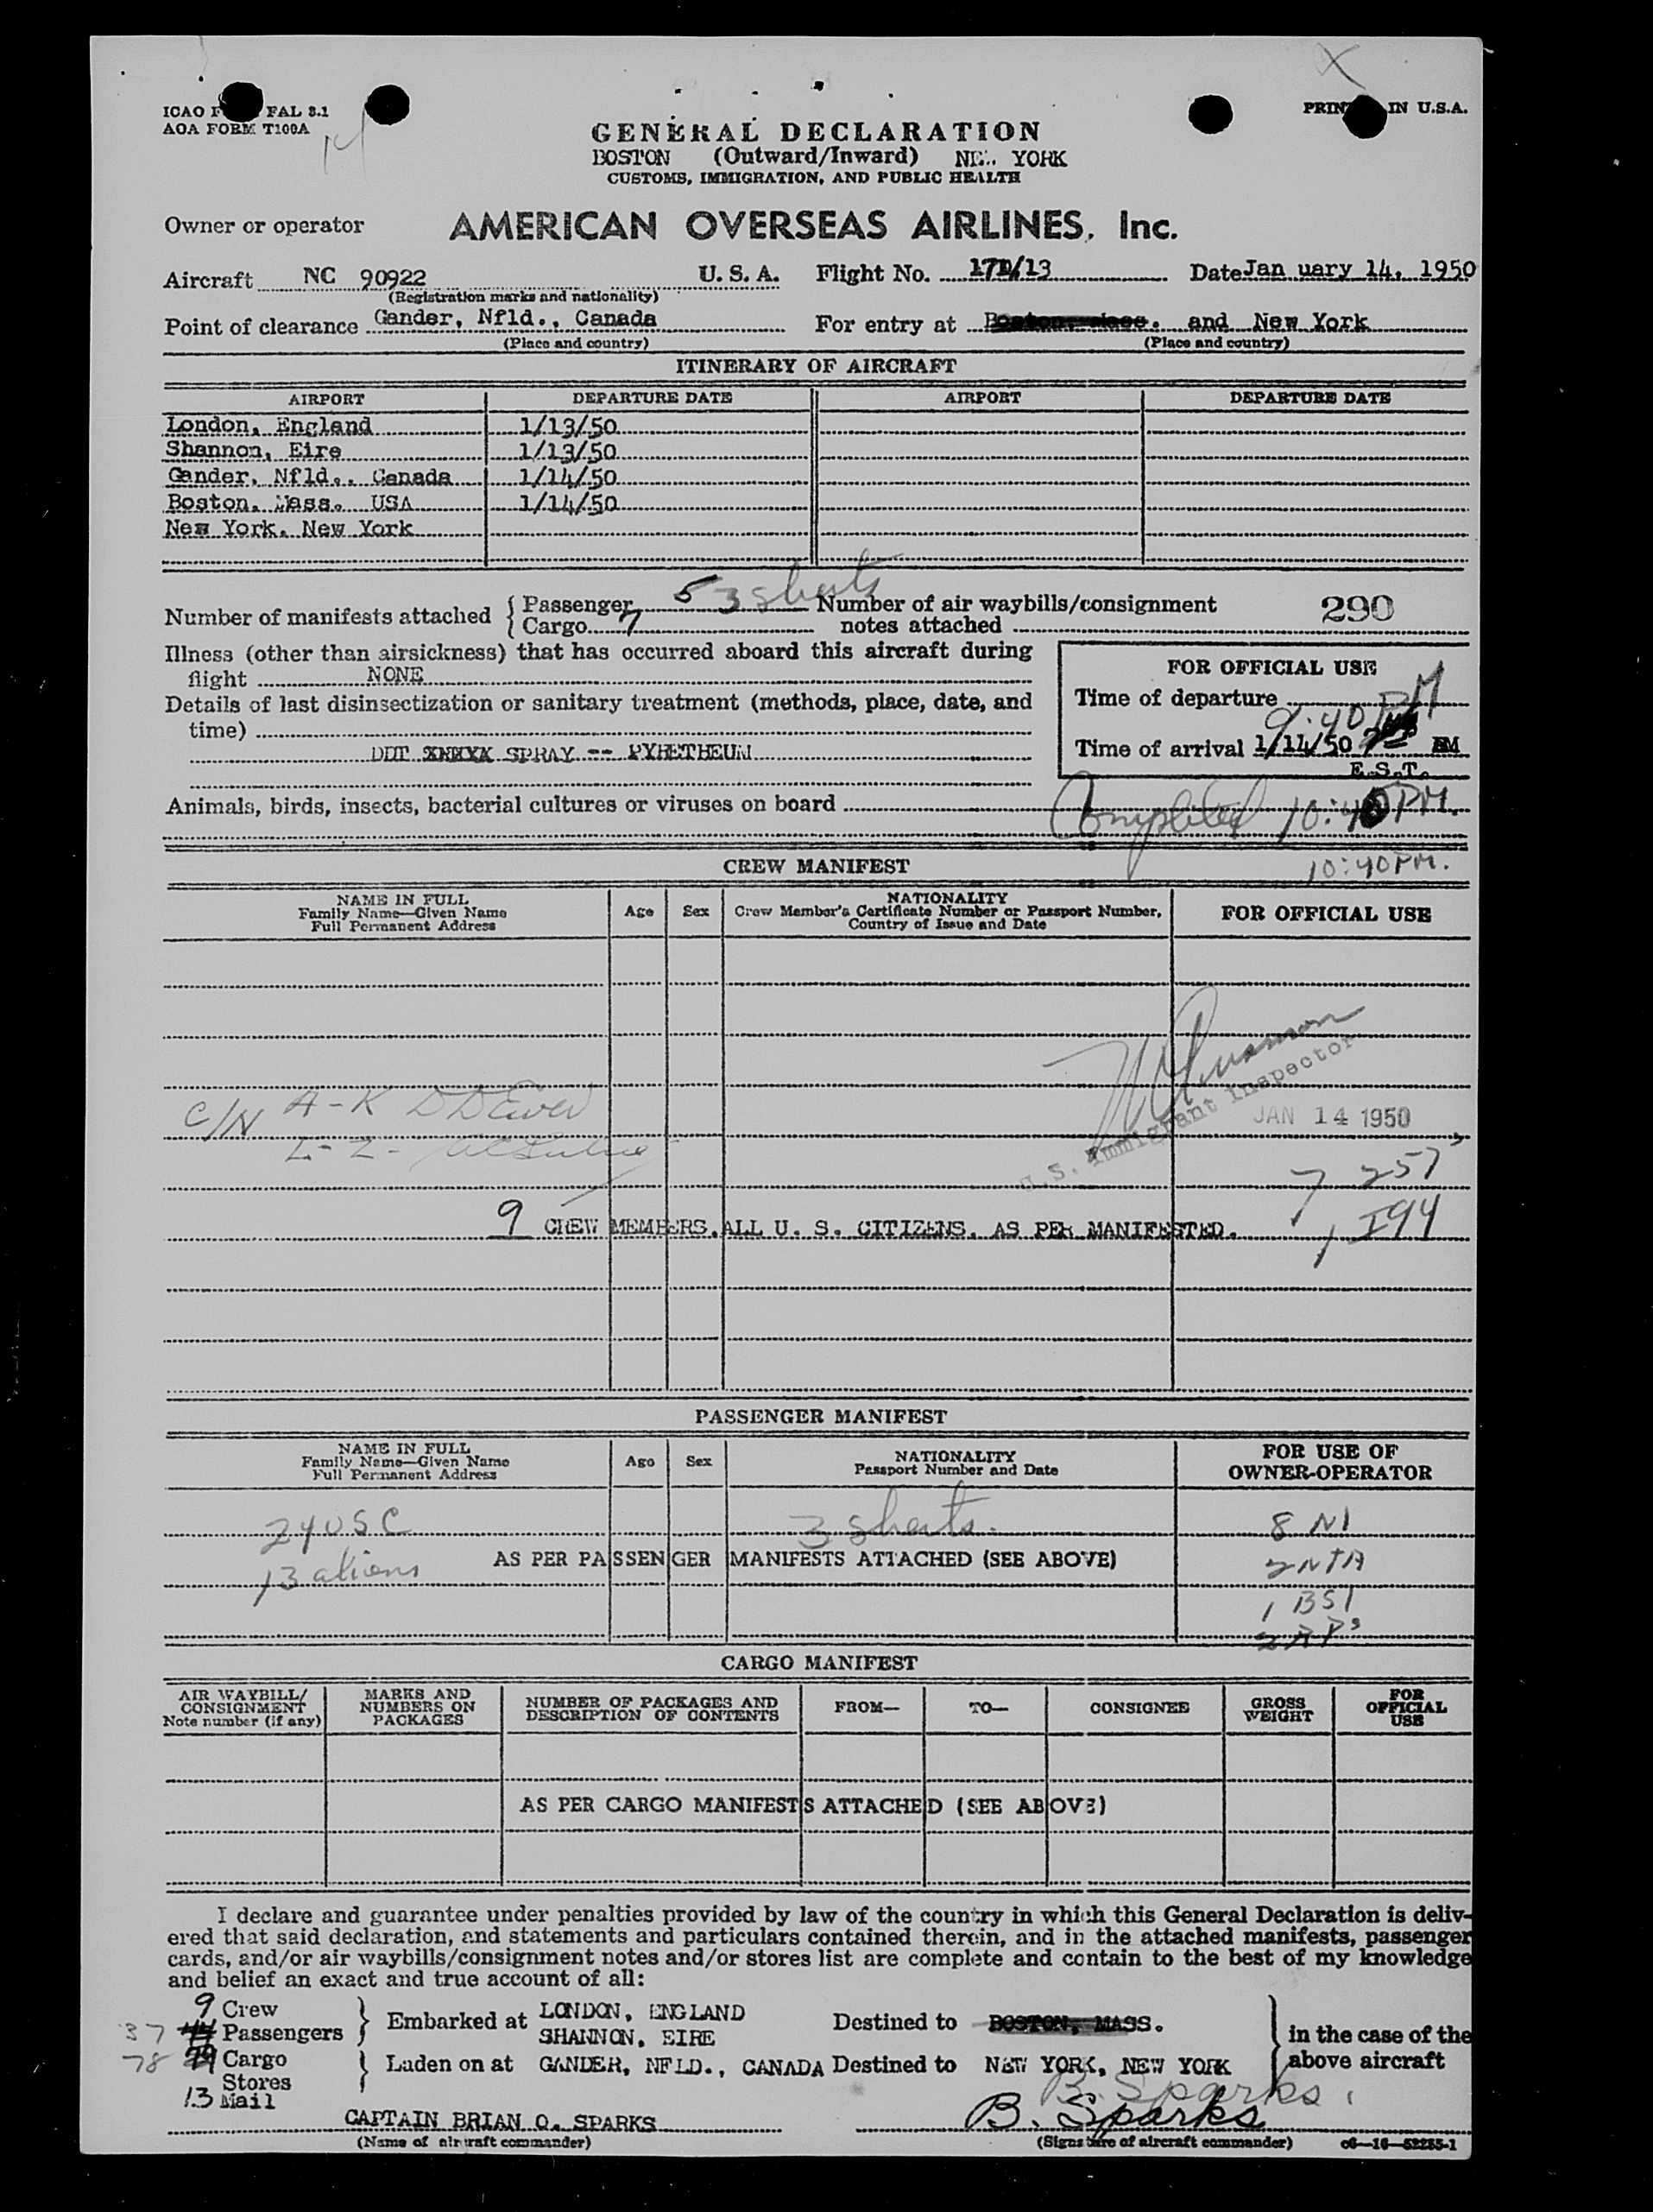 ICAO F FAL 3.1
AOA FORM T100A
PRIN IN U.S.A.
X
GENERAL DECLARATION
BOSTON (Outward/Inward) NEW YORK
CUSTOMS, IMMIGRATION, AND PUBLIC HEALTH
Owner or operator AMERICAN OVERSEAS AIRLINES, Inc.
Aircraft NC 90922 U. S. A. Flight No. /13 Date Jan uary 14, 1950
(Registration marks and nationality)
Point of clearance Gander, Nfld., Canada For entry at and New York
(Place and country) (Place and country)
ITINERARY OF AIRCRAFT
AIRPORT DEPARTURE DATE AIRPORT DEPARTURE DATE
London, England 1/13/50
Shannon, Eire 1/13/50
Gander, Nfld., Canada 1/14/50
Boston, Mass. USA 1/14/50
New York, New York
Number of manifests attached { Passenger 5 3 sheets Number of air waybills/consignment 290
Cargo 7 notes attached
Illness (other than airsickness) that has occurred aboard this aircraft during
flight NONE
Details of last disinsectization or sanitary treatment (methods, place, date, and
time)
DDT SPRAY -- PYRETHEUM
FOR OFFICIAL USE
Time of departure
9:40 PM
Time of arrival 1/14/50
E.S.T.
Animals, birds, insects, bacterial cultures or viruses on board
Completed 10:40 PM.
10:40 PM.
CREW MANIFEST
NAME IN FULL
Family Name—Given Name
Full Permanent Address
Age Sex
NATIONALITY
Crew Member's Certificate Number or Passport Number,
Country of Issue and Date
FOR OFFICIAL USE
U.S. Immigrant Inspector
C/N A-K
JAN 14 1950
L-Z-
7 257
9 CREW MEMBERS, ALL U. S. CITIZENS, AS PER MANIFESTED.
1 I94
PASSENGER MANIFEST
NAME IN FULL
Family Name—Given Name
Full Permanent Address
Age Sex
NATIONALITY
Passport Number and Date
FOR USE OF
OWNER-OPERATOR
24 USC 3 sheets. 8 NI
13 aliens AS PER PASSENGER MANIFESTS ATTACHED (SEE ABOVE) 2 NTA
1 BSI
CARGO MANIFEST
AIR WAYBILL/
CONSIGNMENT
Note number (if any)
MARKS AND
NUMBERS ON
PACKAGES
NUMBER OF PACKAGES AND
DESCRIPTION OF CONTENTS
FROM— TO— CONSIGNEE
GROSS
WEIGHT
FOR
OFFICIAL
USE
AS PER CARGO MANIFESTS ATTACHED (SEE ABOVE)
I declare and guarantee under penalties provided by law of the country in which this General Declaration is deliv-
ered that said declaration, and statements and particulars contained therein, and in the attached manifests, passenger
cards, and/or air waybills/consignment notes and/or stores list are complete and contain to the best of my knowledge
and belief an exact and true account of all:
9 Crew
37 Passengers } Embarked at LONDON, ENGLAND
SHANNON, EIRE Destined to BOSTON, MASS.
78 Cargo
Stores } Laden on at GANDER, NFLD., CANADA Destined to NEW YORK, NEW YORK
in the case of the
above aircraft
13 Mail
B. Sparks
CAPTAIN BRIAN O. SPARKS B. Sparks
(Name of aircraft commander) (Signature of aircraft commander) c6—16—52255-1